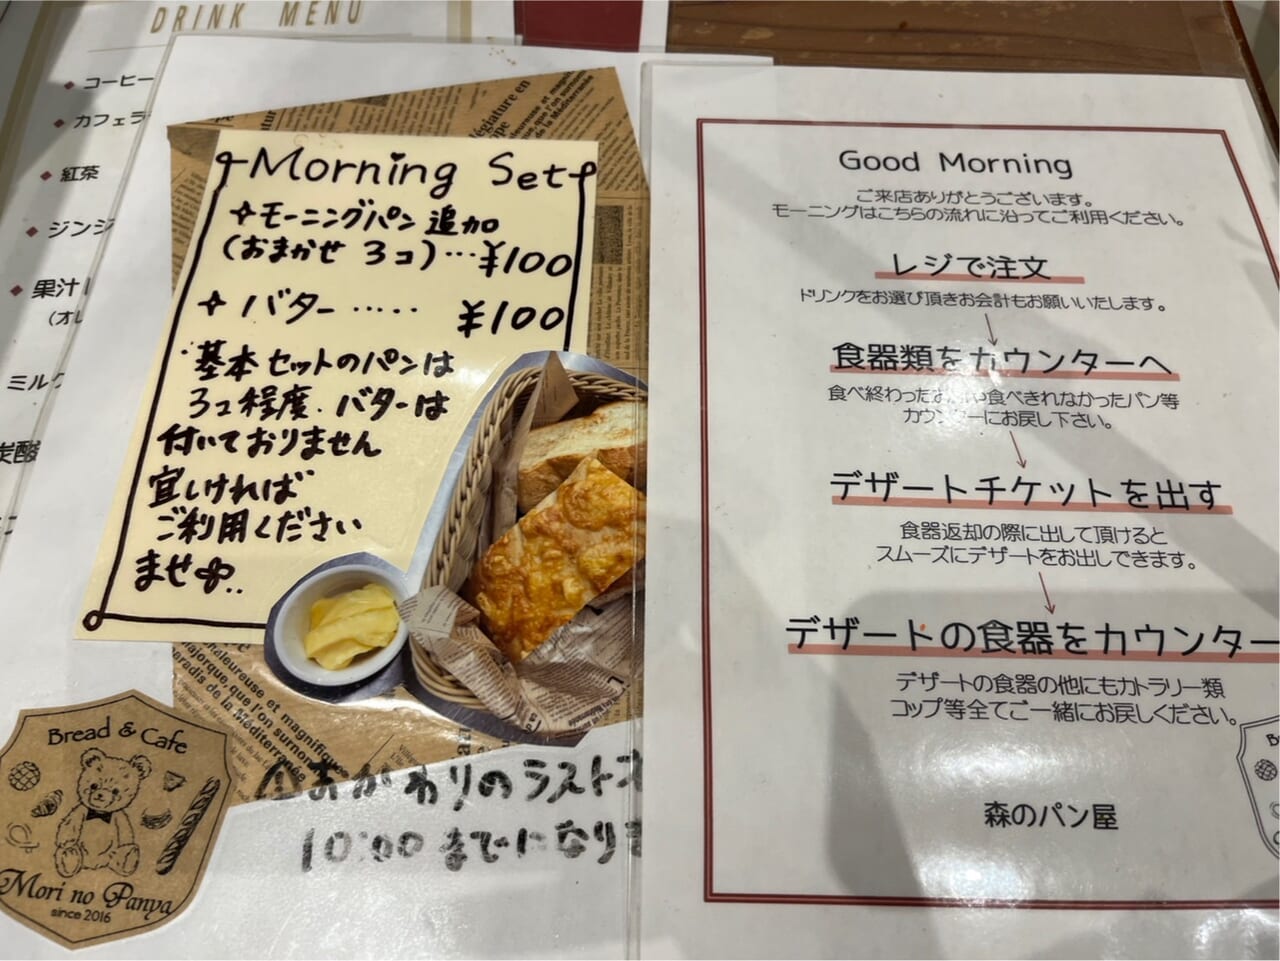 DRINK MENU
コーヒー
カフェラ
紅茶
ジンジ
果汁
(オレ
ミルク
炭酸
Morning Set
モーニングパン 追加
(おまかせ 3コ)…¥100
バター ..... ¥100
・基本セットのパンは
3コ程度.バターは
付いておりません
宜しければ
ご利用ください
ませ
égiature en
malheureuse et magnifique
majorque, que l'on surnom
paradis de la Méditerranée
Bread & Cafe
Mori no Panya
since 2016
おかわりのラスト
10:00までになりま
Good Morning
ご来店ありがとうございます。
モーニングはこちらの流れに沿ってご利用ください。
レジで注文
ドリンクをお選び頂きお会計もお願いいたします。
食器類をカウンターへ
食べ終わったお や食べきれなかったパン等
カウンターにお戻し下さい。
デザートチケットを出す
食器返却の際に出して頂けると
スムーズにデザートをお出しできます。
デザートの食器をカウンター
デザートの食器の他にもカトラリー類
コップ等全てご一緒にお戻しください。
森のパン屋